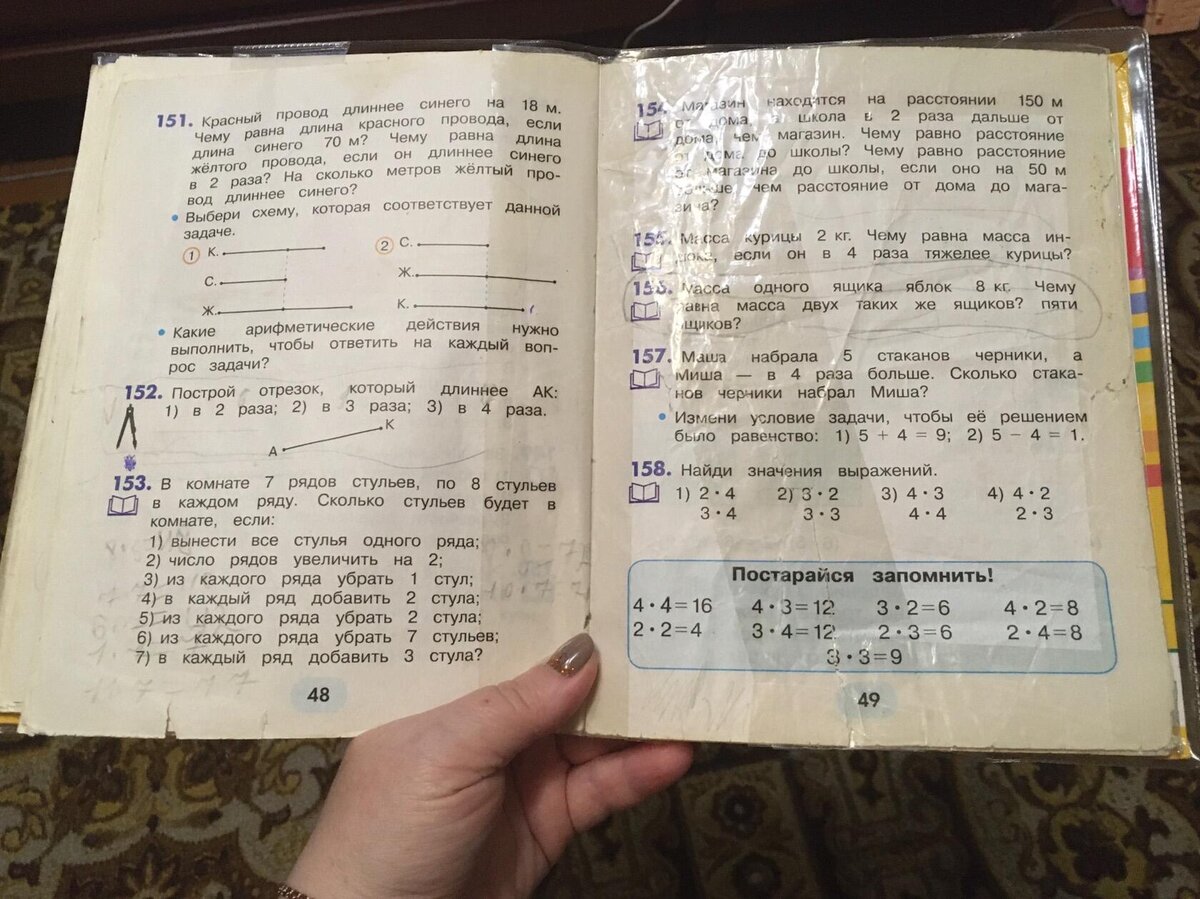 151. Красный провод длиннее синего на 18 м.
Чему равна длина красного провода, если
длина синего 70 м? Чему равна длина
жёлтого провода, если он длиннее синего
в 2 раза? На сколько метров жёлтый про-
вод длиннее синего?
• Выбери схему, которая соответствует данной
задаче.
1 К.
С.
Ж.
2 С.
Ж.
К.
• Какие арифметические действия нужно
выполнить, чтобы ответить на каждый воп-
рос задачи?
152. Построй отрезок, который длиннее АК:
1) в 2 раза; 2) в 3 раза; 3) в 4 раза.
А К
153. В комнате 7 рядов стульев, по 8 стульев
в каждом ряду. Сколько стульев будет в
комнате, если:
1) вынести все стулья одного ряда;
2) число рядов увеличить на 2;
3) из каждого ряда убрать 1 стул;
4) в каждый ряд добавить 2 стула;
5) из каждого ряда убрать 2 стула;
6) из каждого ряда убрать 7 стульев;
7) в каждый ряд добавить 3 стула?
48
154. Магазин находится на расстоянии 150 м
от дома, а школа в 2 раза дальше от
дома, чем магазин. Чему равно расстояние
от дома до школы? Чему равно расстояние
от магазина до школы, если оно на 50 м
больше, чем расстояние от дома до мага-
зина?
155. Масса курицы 2 кг. Чему равна масса ин-
дюка, если он в 4 раза тяжелее курицы?
156. Масса одного ящика яблок 8 кг. Чему
равна масса двух таких же ящиков? пяти
ящиков?
157. Маша набрала 5 стаканов черники, а
Миша — в 4 раза больше. Сколько стака-
нов черники набрал Миша?
• Измени условие задачи, чтобы её решением
было равенство: 1) 5 + 4 = 9; 2) 5 − 4 = 1.
158. Найди значения выражений.
1) 2 · 4 2) 3 · 2 3) 4 · 3 4) 4 · 2
3 · 4 3 · 3 4 · 4 2 · 3
Постарайся запомнить!
4 · 4 = 16 4 · 3 = 12 3 · 2 = 6 4 · 2 = 8
2 · 2 = 4 3 · 4 = 12 2 · 3 = 6 2 · 4 = 8
3 · 3 = 9
49